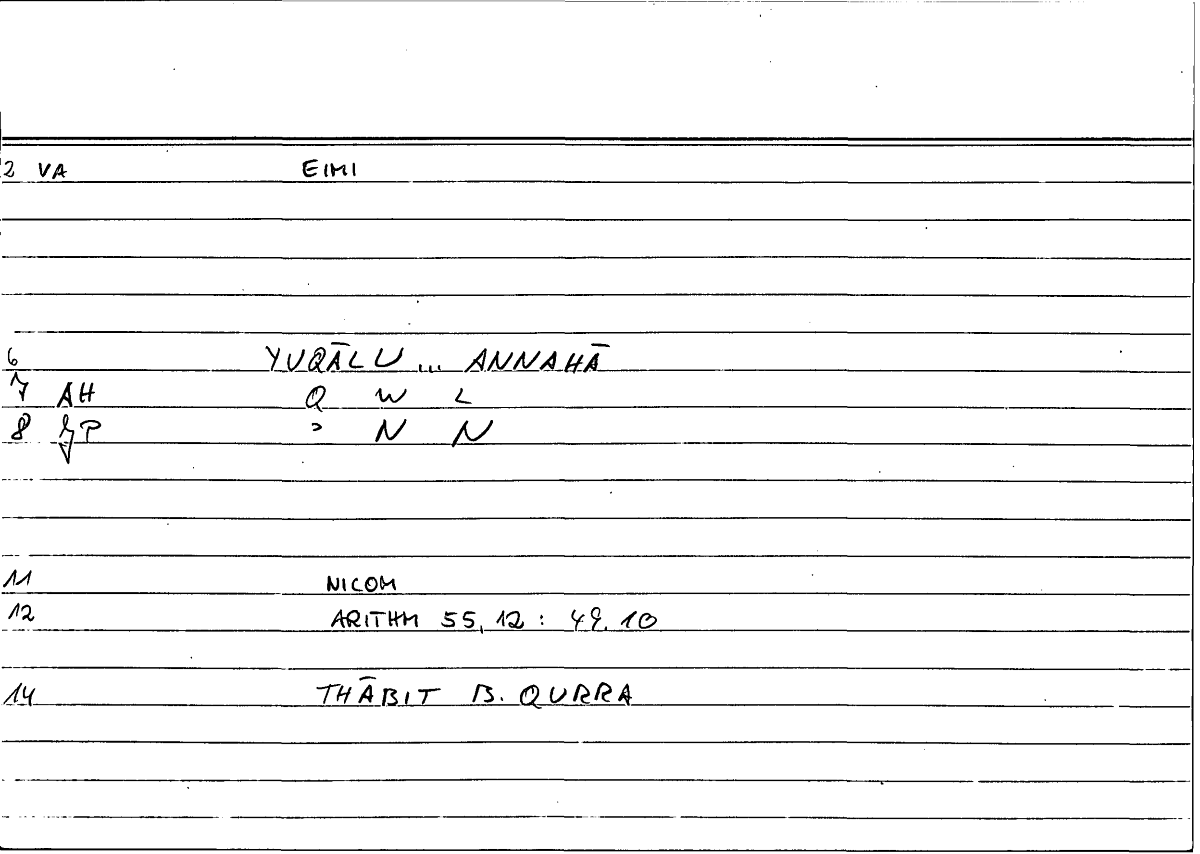 2 VA EIMI
6 YUQĀLU ... ANNAHĀ
7 AH Q W L
8 ʾ N N
11 NICOM
12 ARITHM 55,12 : 49.10
14 THĀBIT B. QURRA